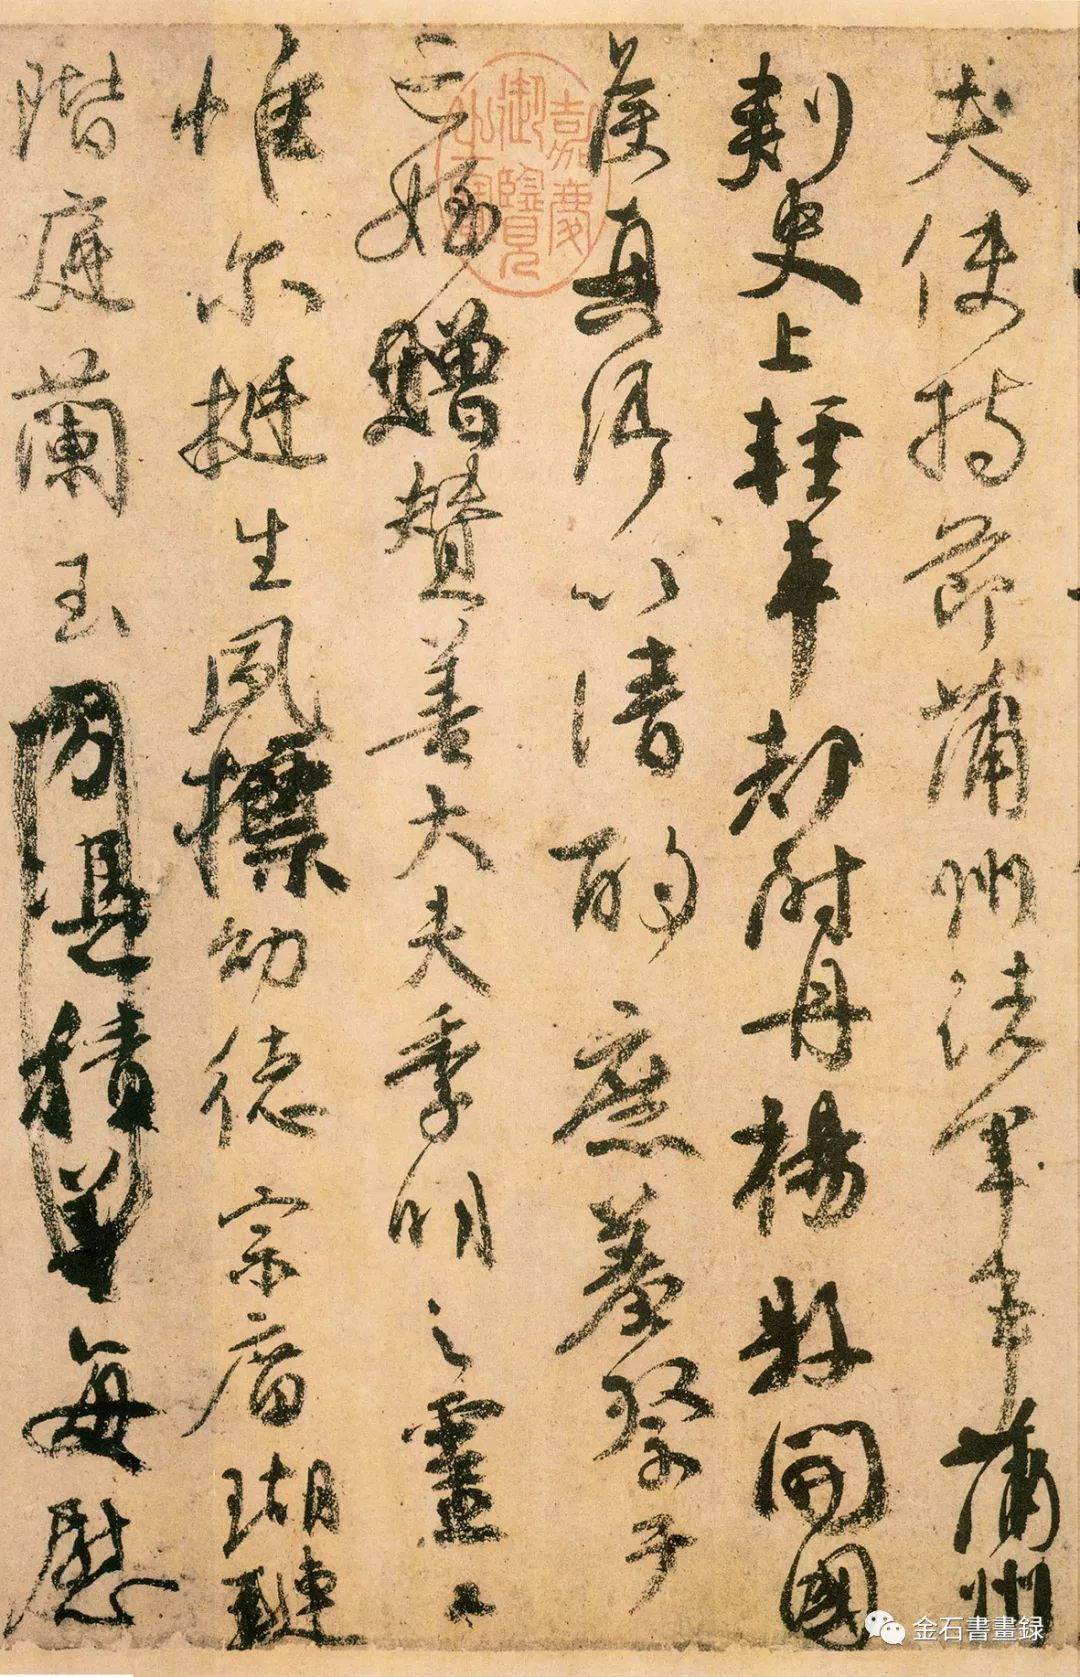 夫使持節蒲州諸軍事蒲州
刺史上輕車都尉丹楊縣開國
侯真卿以清酌庶羞祭于
亡姪贈贊善大夫季明之靈曰
惟尔挺生夙標幼德宗廟瑚璉
階庭蘭玉方憑積善每慰
嘉慶御覽之寶
金石書畫録